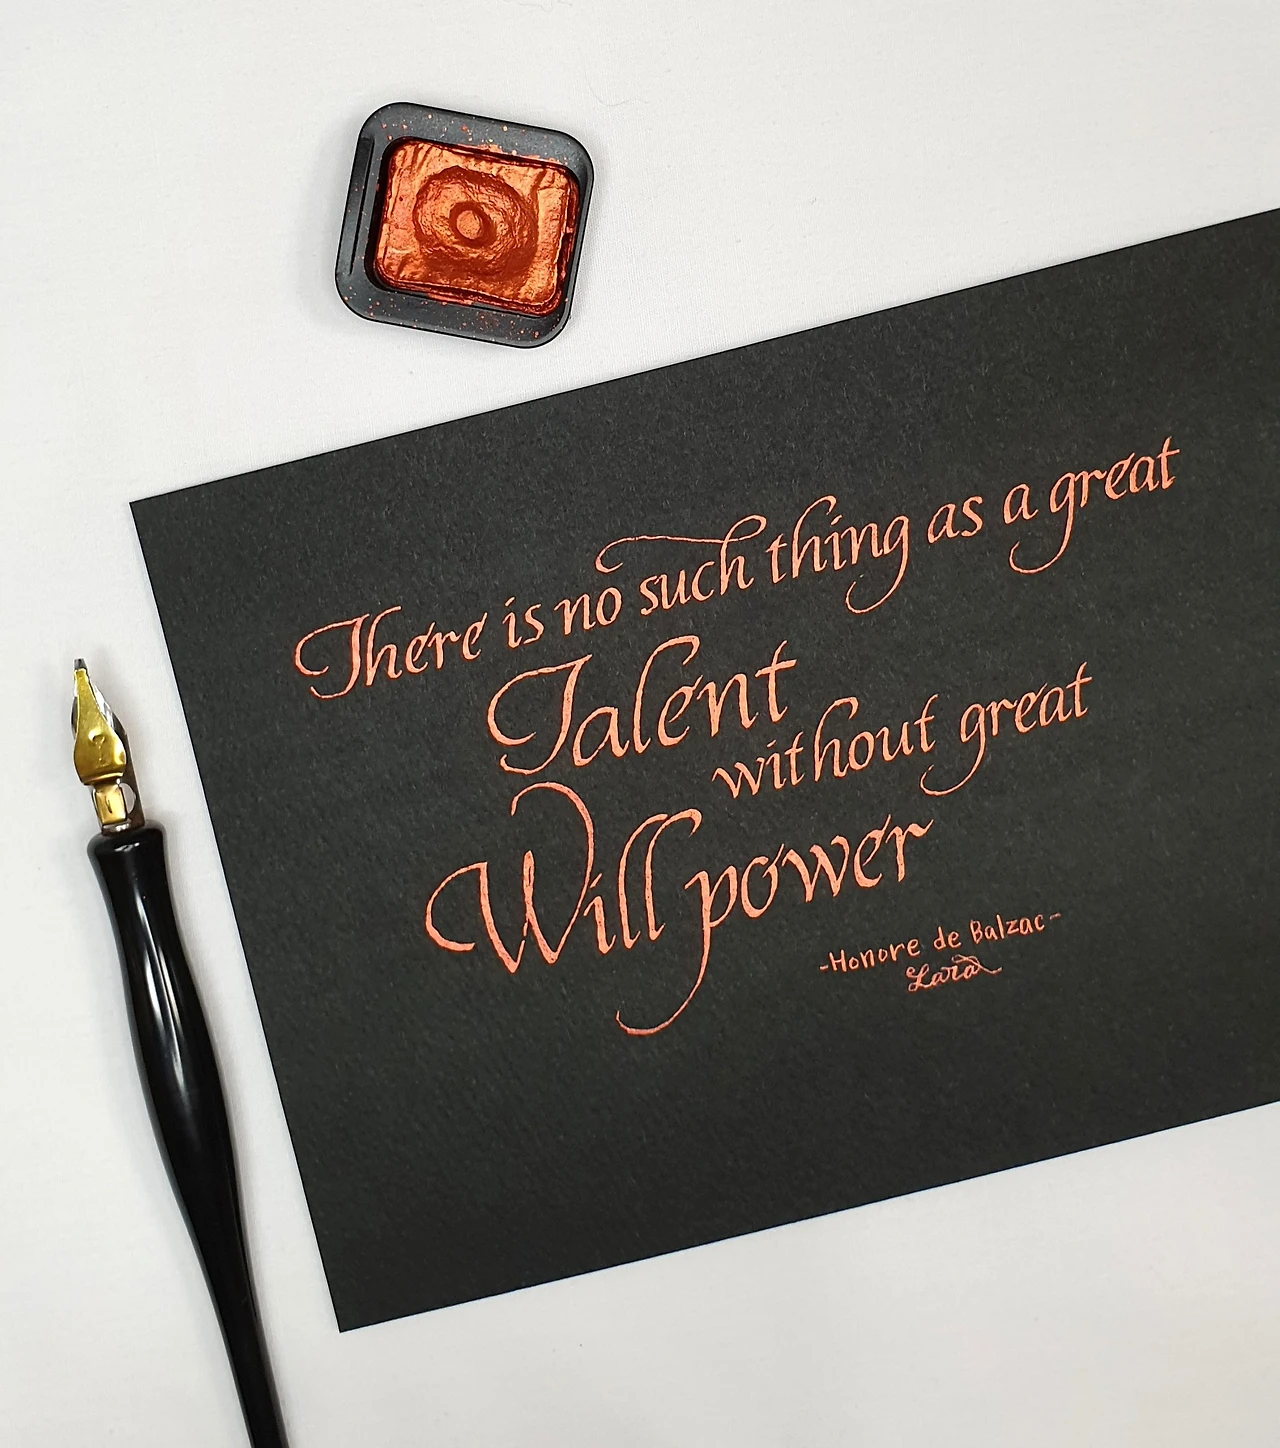 There is no such thing as a great
Talent
without great
Will power
-Honore de Balzac-
Lara